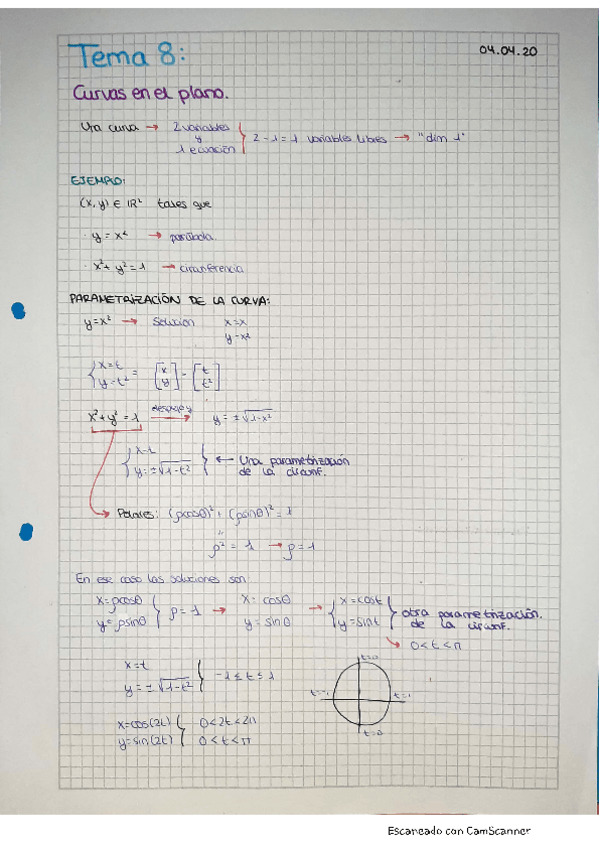 Tema 8:
04.04.20
Curvas en el plano.
Una curva → 2 variables y 1 ecuación } 2 - 1 = 1 variables libres → "dim 1"
EJEMPLO:
(x, y) ∈ IR² tales que
· y = x² → parábola.
· x² + y² = 1 → circunferencia
PARAMETRIZACIÓN DE LA CURVA:
y = x² → Solución x = x
y = x²
{ x = t
y = t² = [x y] = [t t²]
x² + y² = 1 despejo y → y = ± √1-x²
{ x = t
y = ± √1-t² } ← Una parametrización
de la circunf.
Polares: (ρcosθ)² + (ρsinθ)² = 1
"
ρ² = 1 → ρ = 1
En ese caso las soluciones son
x = ρcosθ
y = ρsinθ } ρ = 1 → x = cosθ
y = sinθ → { x = cost
y = sint } otra parametrización.
de la circunf.
↳ 0 < t < π
x = t
y = ± √1-t² } -1 ≤ t ≤ 1
t=0
t=-1
t=1
t=0
x = cos(2t)
y = sin(2t) { 0 < 2t < 2π
0 < t < π
Escaneado con CamScanner